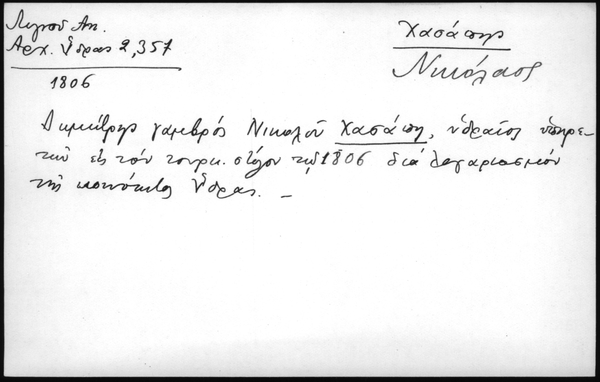 Λιγνού Αν.
Αρχ. Ύδρας 2,357
1806
Χασάπης
Νικόλαος
Δημήτρης γαμβρός Νικολού Χασάπη, υδραίος υπηρε-
τών εις τον τουρκ. στόλον τω 1806 διά λογαριασμόν
της κοινότητος Ύδρας. _